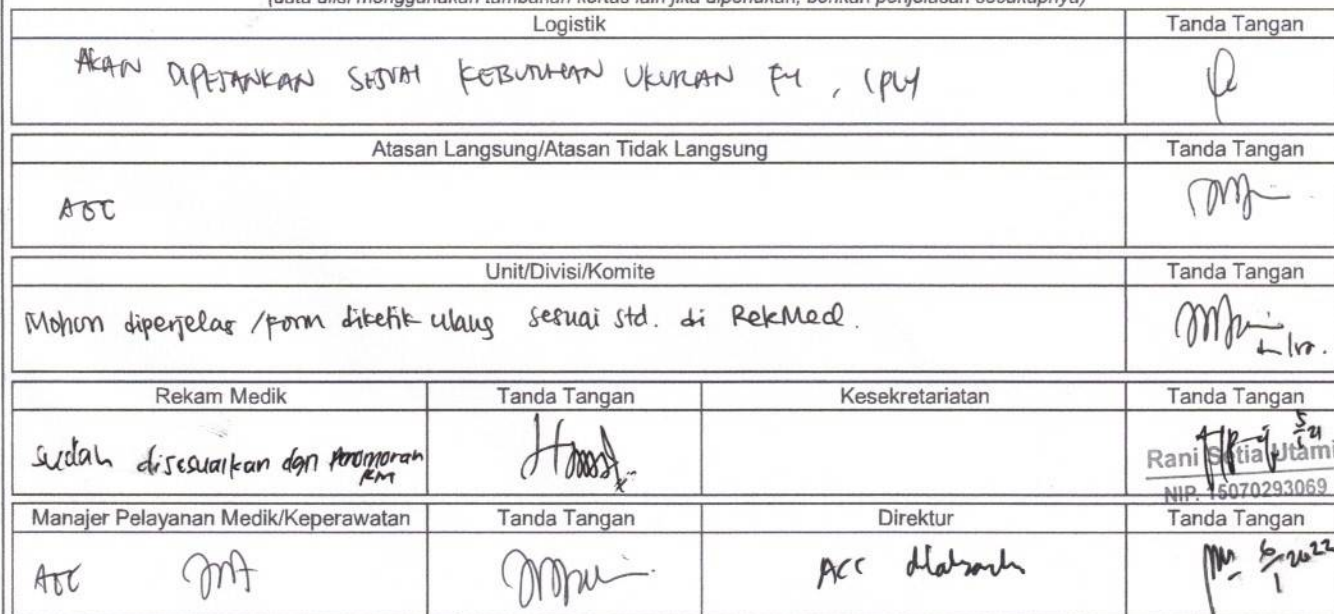 (data diisi menggunakan tambahan kertas lain jika diperlukan, berikan penjelasan secukupnya)
Logistik Tanda Tangan
AKAN DIPESANKAN SESUAI KEBUTUHAN UKURAN F4, 1 PLY
Atasan Langsung/Atasan Tidak Langsung Tanda Tangan
ACC
Unit/Divisi/Komite Tanda Tangan
Mohon diperjelas /form diketik ulang sesuai std. di RekMed.
Rekam Medik Tanda Tangan Kesekretariatan Tanda Tangan
sudah disesuaikan dgn Penomoran RM
Rani Setia Utami
NIP. 15070293069
Manajer Pelayanan Medik/Keperawatan Tanda Tangan Direktur Tanda Tangan
ACC ACC 6/1 2022